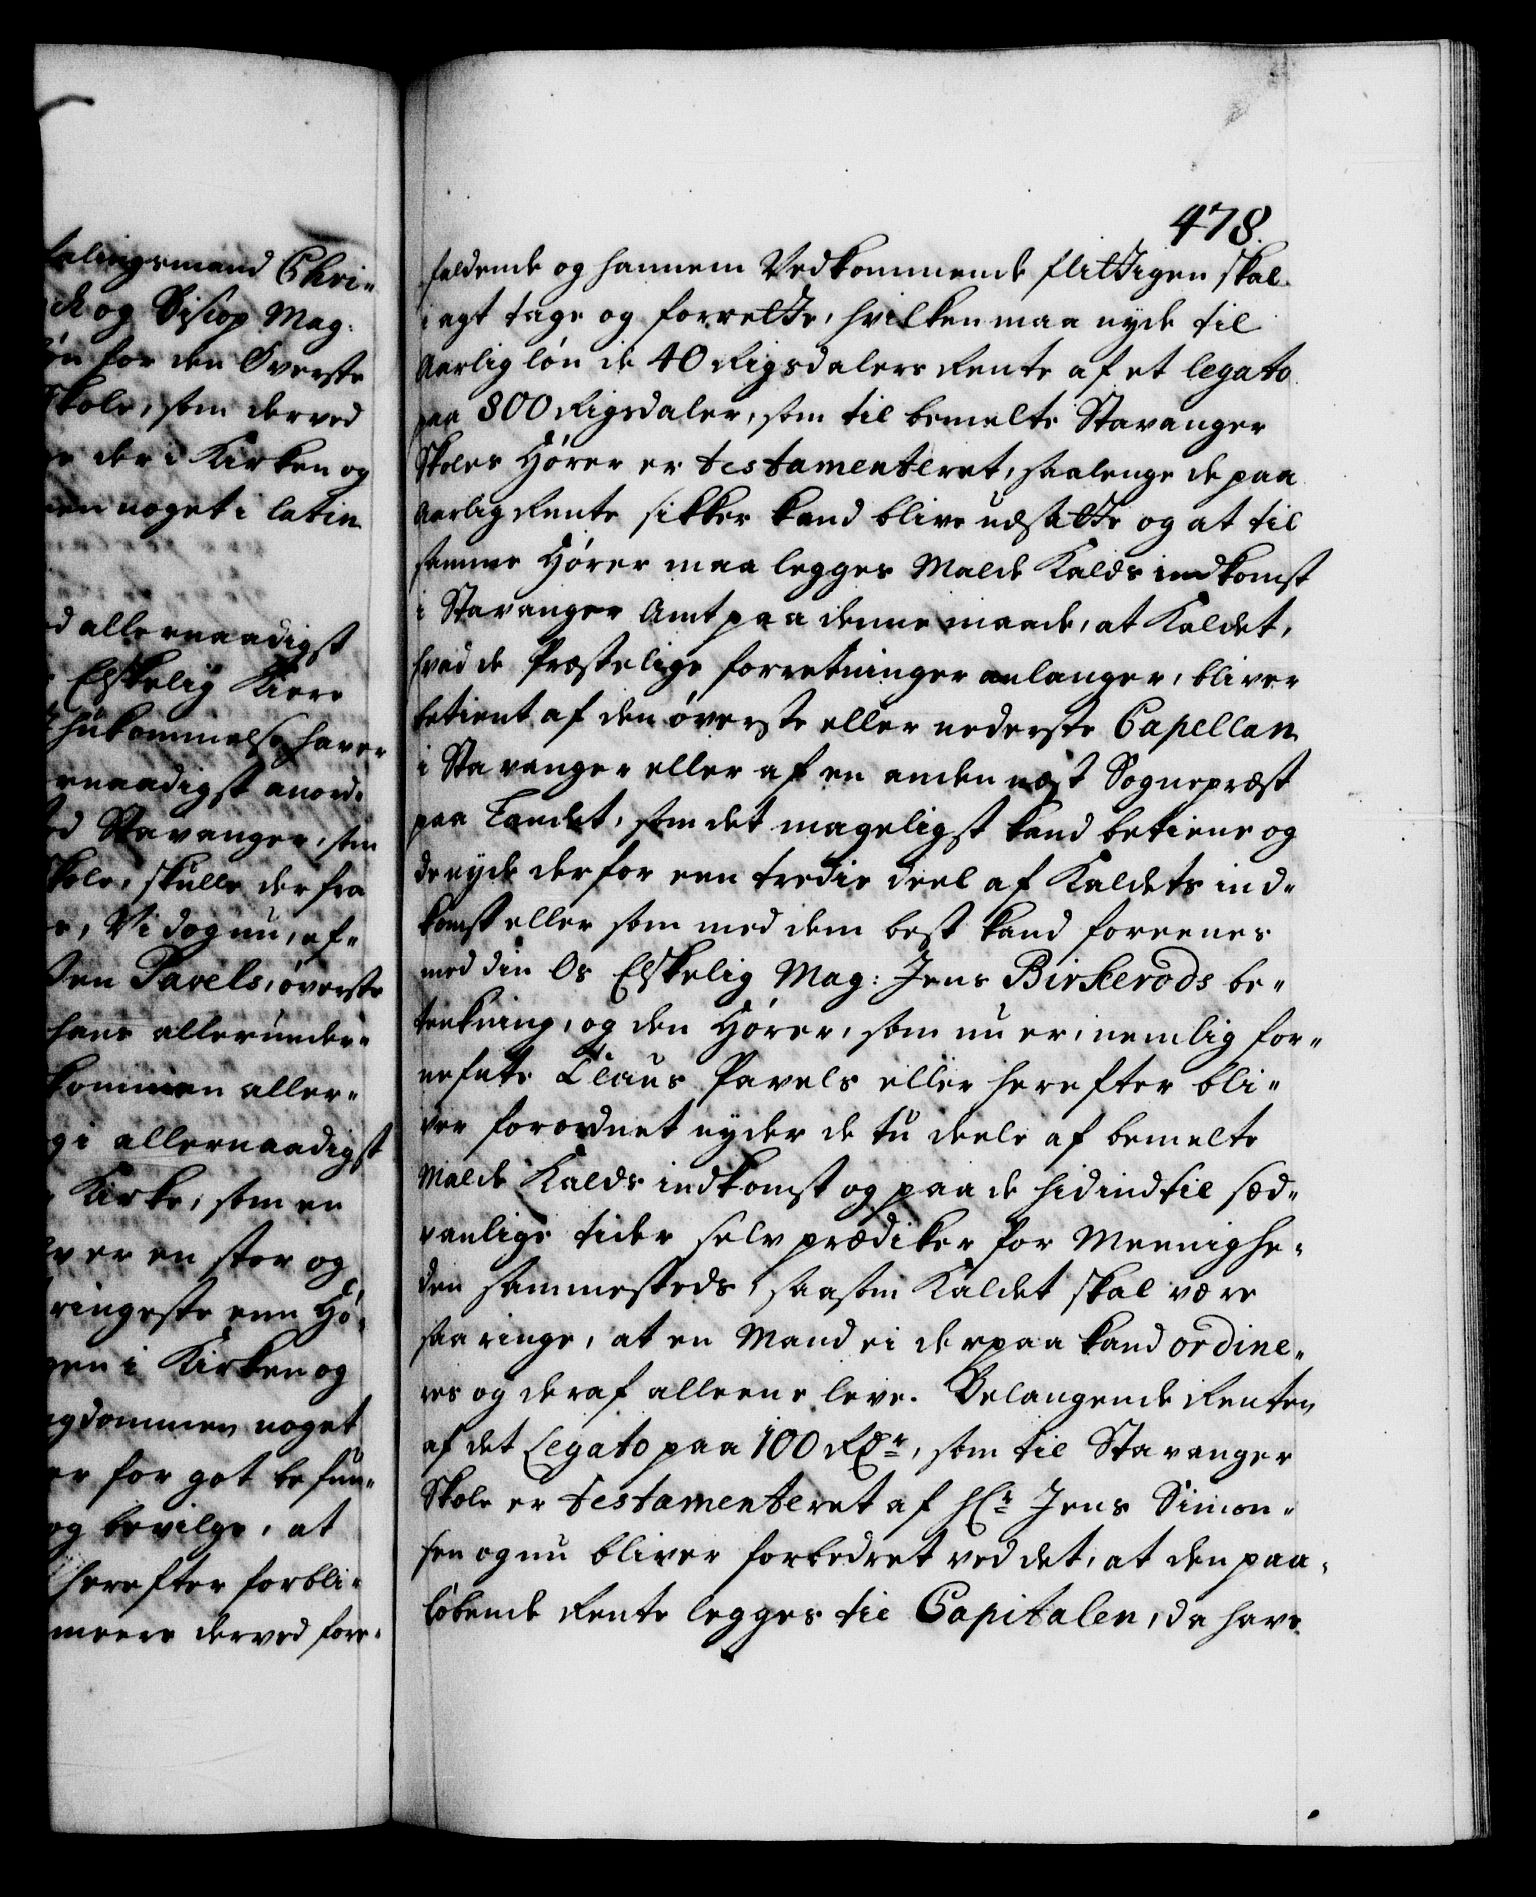 befalingsmand Chri-
ck og Biscop Mag:
løn for den Øverste
Skole, som derved
der i Kirken og
noget i latin
allernaadigst
Elskelig Kiere
ihukommelse haver
allernaadigst anord-
ved Stavanger, som
Skole, skulle derfra
Vi dog nu, ef-
sen Pavels, øverste
hans allerunder-
kommen aller-
og i allernaadigst
Kirke, som en
er en stor og
ringeste enn Hø-
gen i Kirken og
ngdommen noget
for got befun-
og bevilge, at
herefter forbli-
meere derved fore-
478.
faldende og hannem Vedkommende flittigen skal
i agt tage og forrette, hvilken maa nyde til
Aarlig løn de 40 Rigsdalers Rente af et legato
paa 800 Rigsdaler, som til bemelte Stavanger
Skoles Hører er testamenteret, saalenge de paa
Aarlig Rente sikker kand blive udsatte og at til
samme Hører maa legges Malde Kalds indkomst
i Stavanger Amt paa denne maade, at Kaldet,
hvad de Præstelige forretninger anlanger, bliver
betient af den øverste eller nederste Capellan
i Stavanger eller af en anden næst Sognepræst
paa Landet, som det mageligst kand betiene og
de nyde derfor enn tredie deel af Kaldets ind-
komst eller som med dem best kand foreenes
med din Os Elskelig Mag: Jens Birkerods be-
tenkning, og den Hører, som nu er, nemlig for-
nefnte Claus Pavels eller herefter bli-
ver forordnet nyder de tu deele af bemelte
Malde Kalds indkomst og paa de hidindtil sæd-
vanlige tider selv prædiker for Meenighe-
den sammesteds, saasom Kaldet skal være
saa ringe, at en Mand ei derpaa kand ordine-
res og deraf alleene leve. Belangende Renten
af det Legato paa 100 Rdr, som til Stavanger
Skole er testamenteret af Hr Jens Simon-
sen og nu bliver forbedret ved det, at den paa-
løbende Rente legges til Capitalen, da have